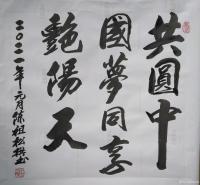 共圓中
國夢同享
艷陽天
二〇二一年元月陈祖松拱书